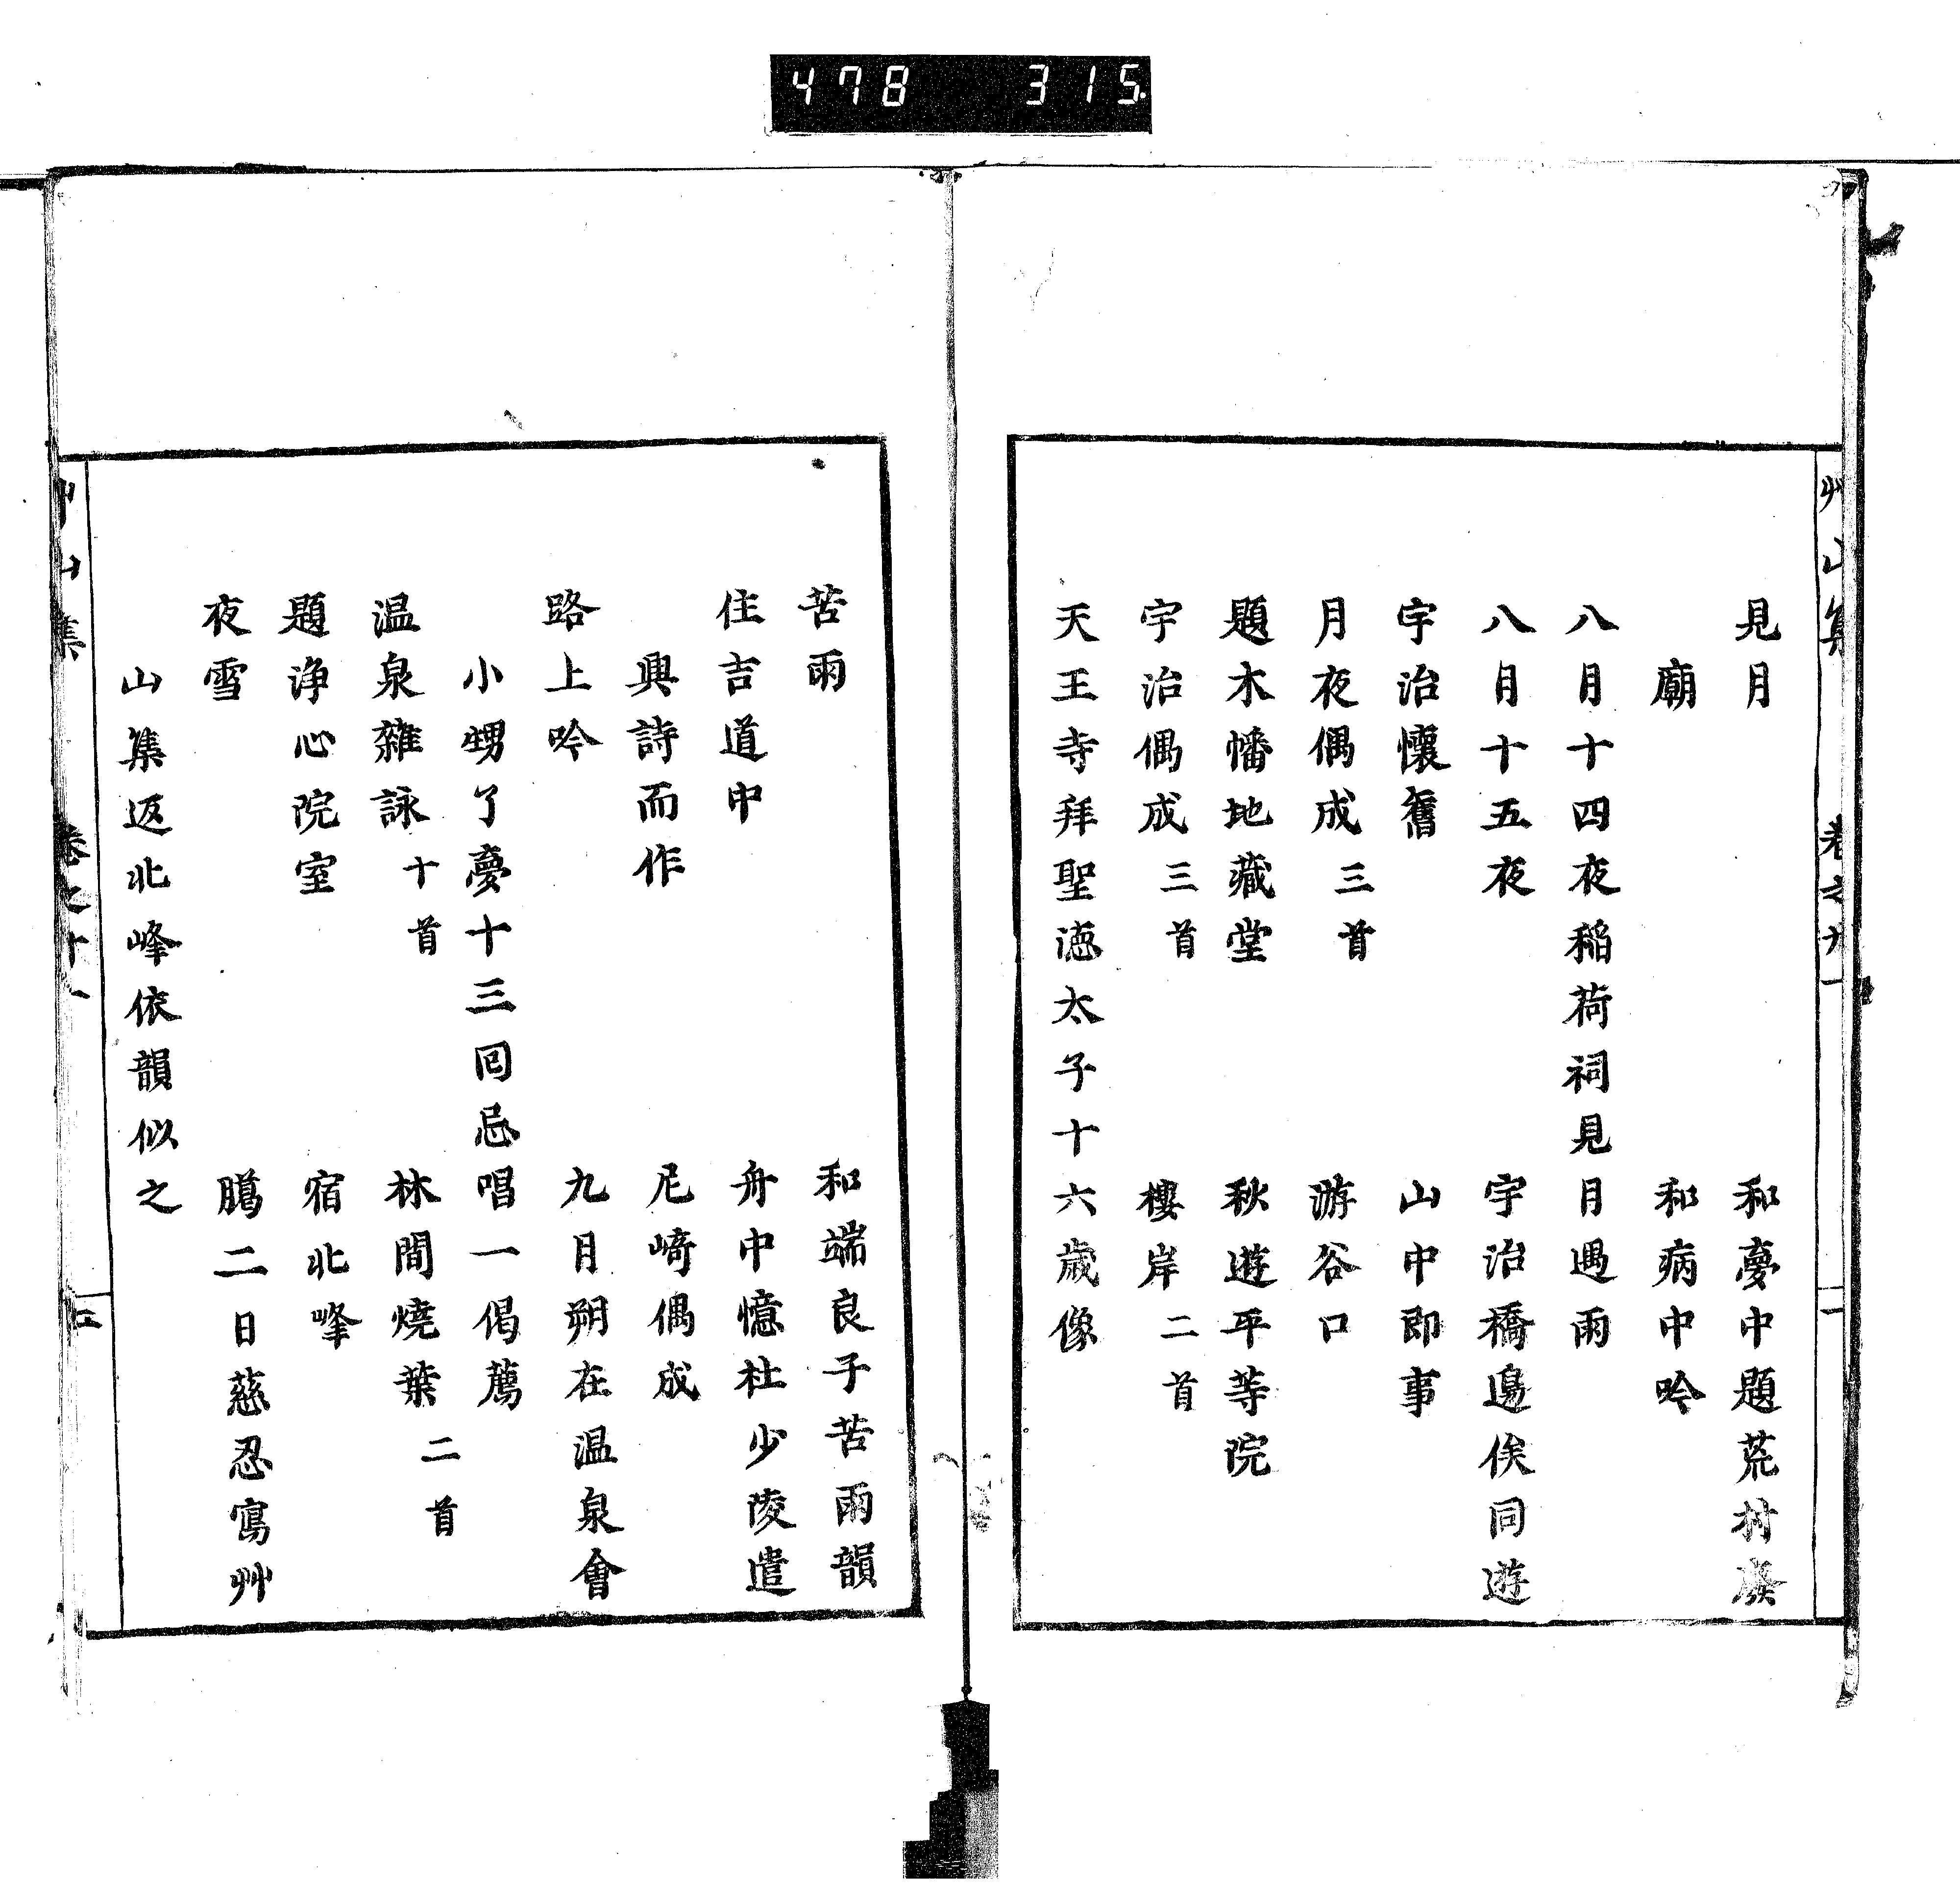 478 315
見月 和夢中題荒村廢
廟 和病中吟
八月十四夜稲荷祠見月遇雨
八月十五夜 宇治橋邊俟同遊
宇治懷舊 山中即事
月夜偶成三首 游谷口
題木幡地藏堂 秋遊平等院
宇治偶成三首 樓岸二首
天王寺拜聖德太子十六歲像
苦雨 和端良子苦雨韻
住吉道中 舟中憶杜少陵遣
興詩而作 尼崎偶成
路上吟 九月朔在温泉會
小甥了夢十三回忌唱一偈薦
温泉雜詠十首 林間燒葉二首
題浄心院室 宿北峰
夜雪 臈二日慈忍寫艸
山集返北峰依韻似之